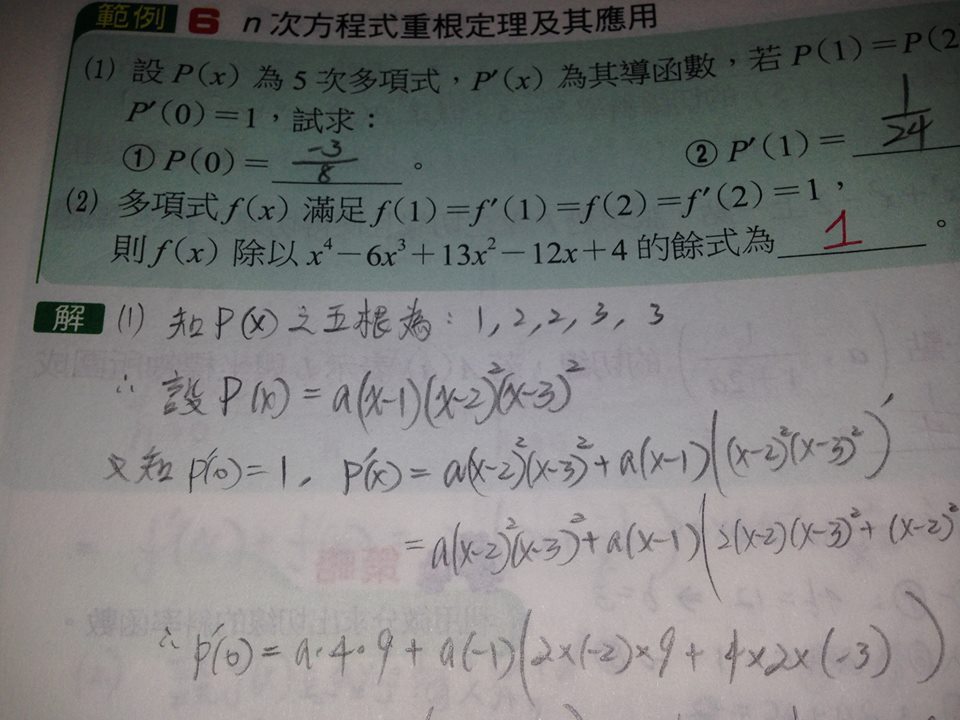 範例 6 n 次方程式重根定理及其應用
(1) 設 P(x) 為 5 次多項式，P′(x) 為其導函數，若 P(1)=P(2
P′(0)=1，試求：
① P(0)= -3/8 。 ② P′(1)= 1/24
(2) 多項式 f(x) 滿足 f(1)=f′(1)=f(2)=f′(2)=1，
則 f(x) 除以 x⁴-6x³+13x²-12x+4 的餘式為 1 。
解 (1) 知 P(x) 之五根為：1, 2, 2, 3, 3
∴ 設 P(x) = a(x-1)(x-2)²(x-3)²
又知 P′(0)=1, P′(x) = a(x-2)²(x-3)²+a(x-1)((x-2)²(x-3)²)′
= a(x-2)²(x-3)²+a(x-1)(2(x-2)(x-3)²+(x-2)²
策略
∴ P′(0) = a·4·9 + a(-1)(2×(-2)×9 + 4×2×(-3))